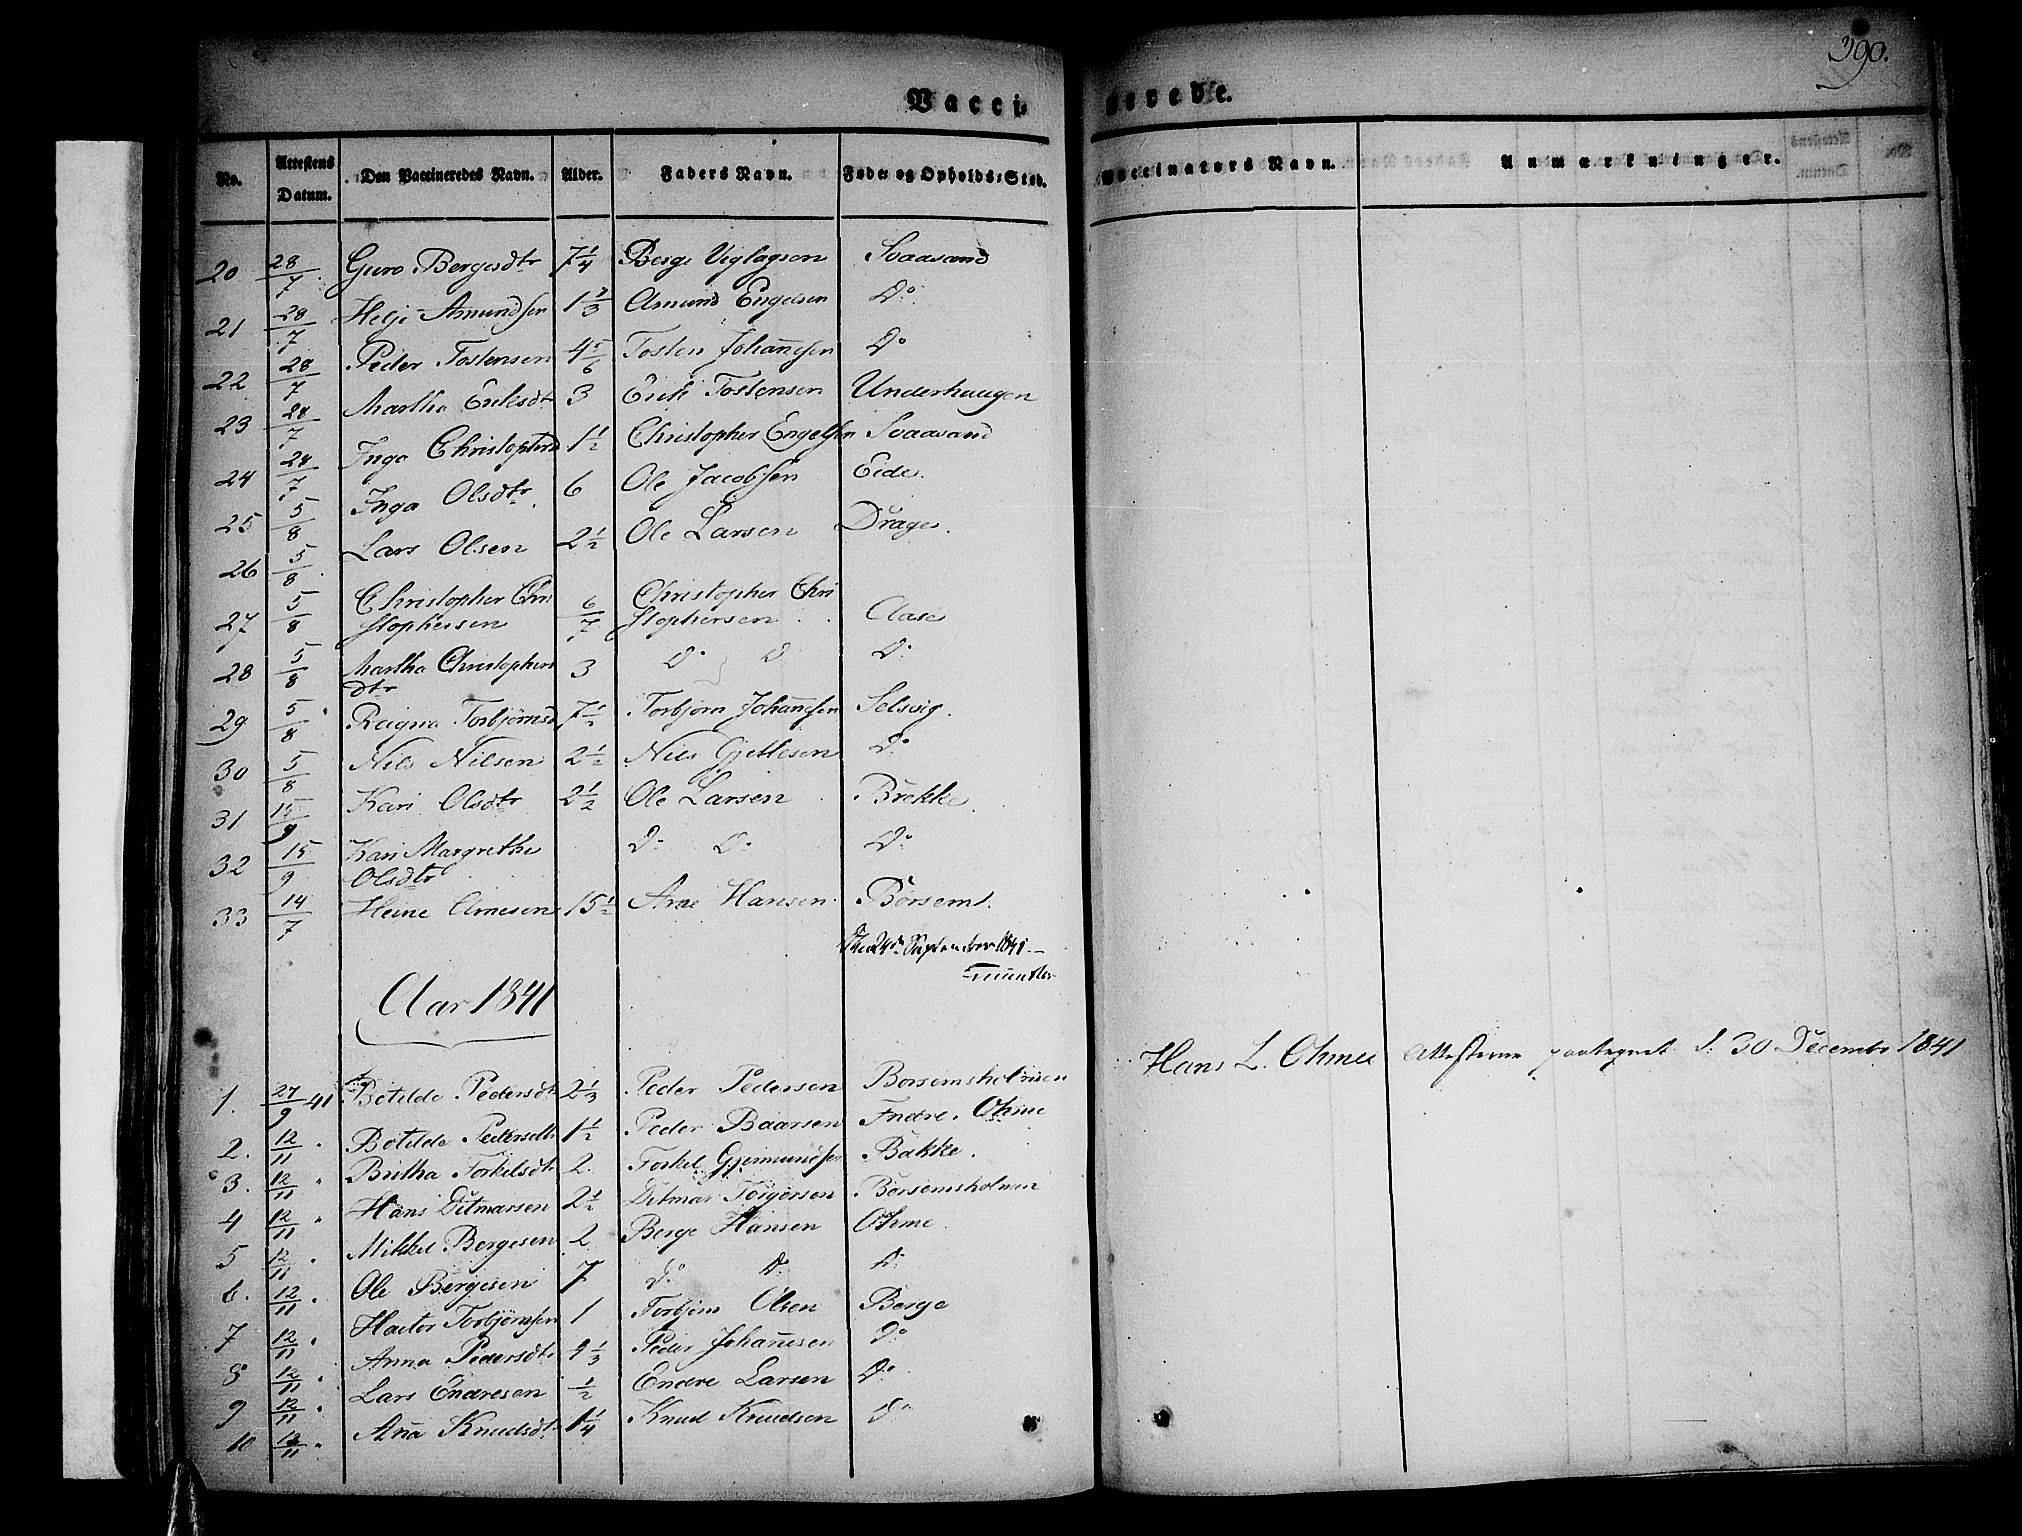 390.
Vaccinerede.
No. Attestens Datum. Den Vaccineredes Navn. Alder. Faders Navn. Føde- og Opholds-Sted. Vaccinators Navn. Anmærkninger.
20 28/7 Guro Bergesdtr 7 1/4 Berge Svaasand
21 28/7 Helje Amundsen Amund Engelsen Do
22 28/7 Peder Tostensen 4 5/6 Tosten Johan̄esen Do
23 28/7 Martha Eriksdt 3 Erik Tostensen Underhaugen
24 28/7 Inga Christophersd 1 1/2 Christopher Engelsen Svaasand
25 5/8 Inga Olsdtr. 6 Ole Jacobsen Eide.
26 5/8 Lars Olsen 2 1/2 Ole Larsen Drage.
27 5/8 Christopher Chri 6/7 Christopher Chri Aase
stophersen stophersen
28 5/8 Martha Christophers 3 Do Do Do
dtr
29 5/8 Ragna Torbjørnsd 7 1/2 Torbjørn Johan̄sen Selsvig.
30 5/8 Nils Nilsen 2 1/2 Nils Gjetlesen Do
31 15/9 Kari Olsdtr 2 1/2 Ole Larsen Brekke
32 15/9 Kari Margrethe Do Do Do
Olsdtr
33 14/7 Heine Arnesen 15 1/2 Arne Hansen Børsem
24de September 1841
Aar 1841
1. 27/9 41 Botilde Pedersdt 2 1/3 Peder Pedersen Børsemsholmen Hans L. Ohme Attesterne paategnet d. 30 Decembr 1841
2. 12/11 " Botilde Pedersdt 1 1/2 Peder Baarsen Indre. Ohme
3. 12/11 " Britha Torkelsdt 2. Torkel Gjermundsen Bakke.
4 12/11 " Hans Ditmarsen 2 1/2 Ditmar Torgersen Børsemsholmen
5 12/11 " Mikkel Bergesen 2 Berge Hansen Ohme
6. 12/11 " Ole Bergesen 7 Do Do Do
7 12/11 " Hactor Torbjørnsen 1 Torbjørn Olsen Berge
8 12/11 " Anna Pedersdt. Peder Johan̄esen Do
9 12/11 " Lars Endresen 1/2 Endre Larsen Do
10 12/11 " An̄a Knudsdt 1 1/4 Knud Knudsen Do